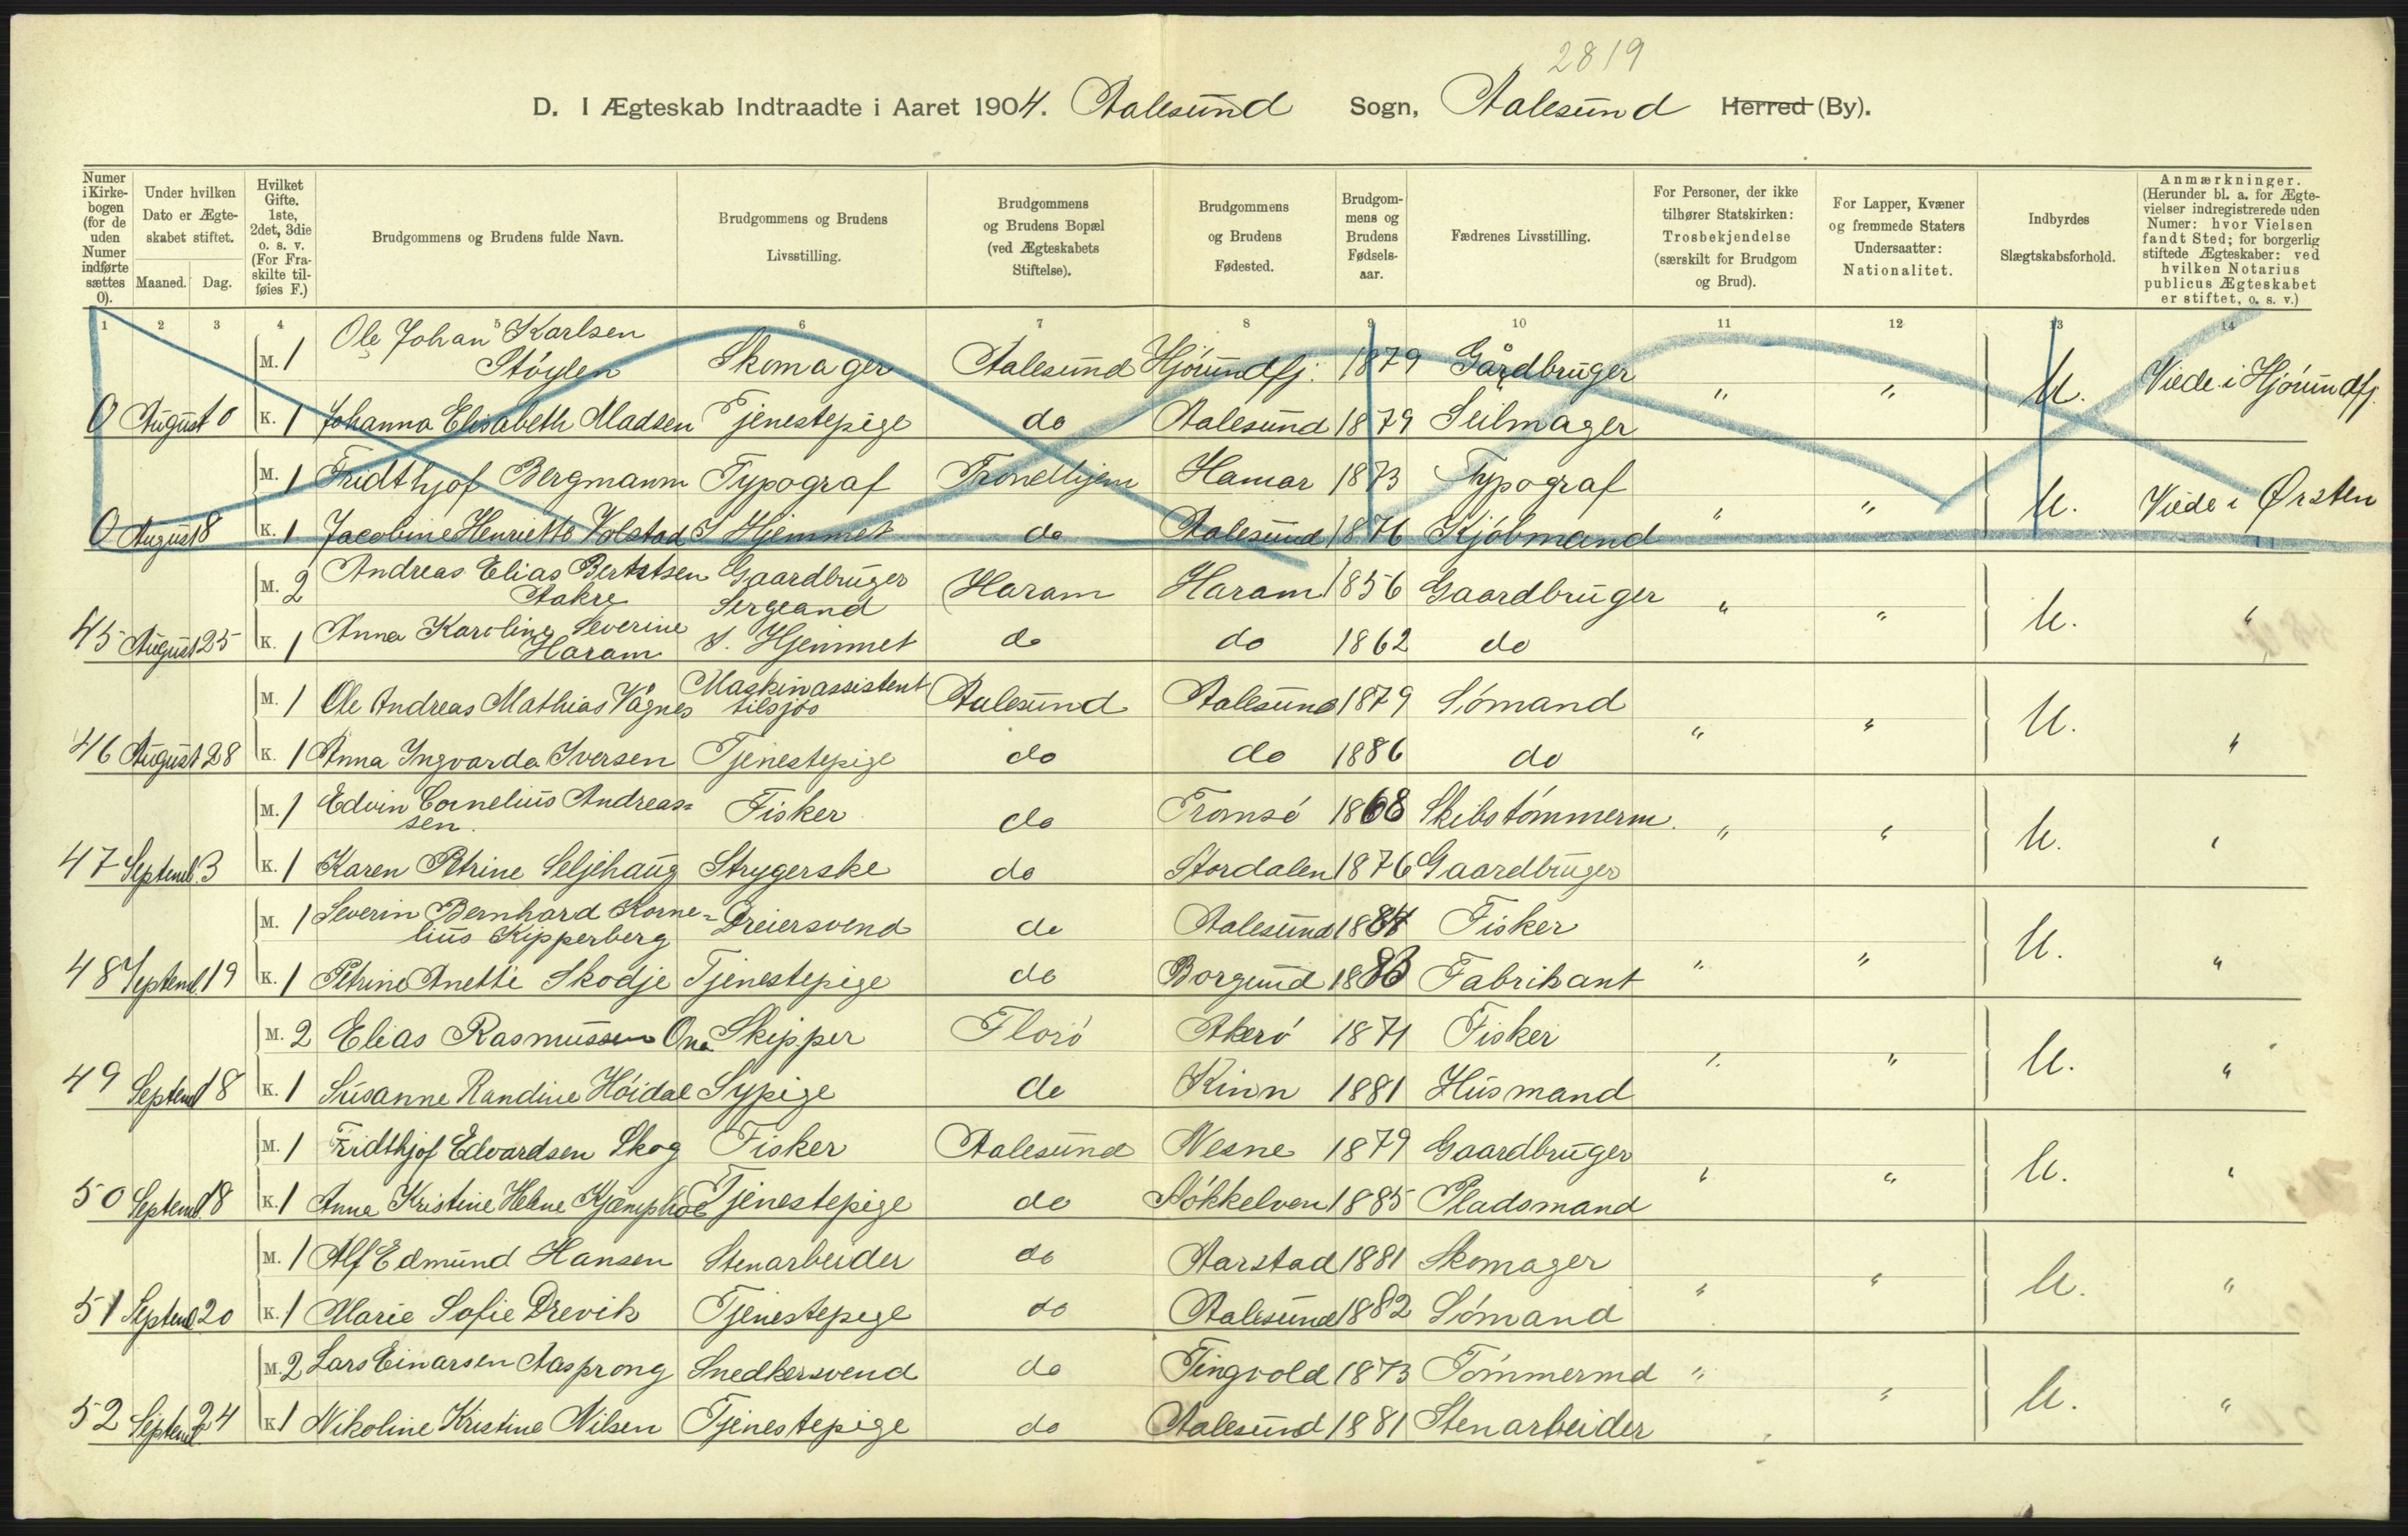 2819
D. I Ægteskab Indtraadte i Aaret 1904. Aalesund Sogn, Aalesund Herred (By).
Numer i Kirkebogen (for de uden Numer indførte sættes 0).
Under hvilken Dato er Ægteskabet stiftet.
Maaned. Dag.
Hvilket Gifte. 1ste, 2det, 3die o. s. v. (For Fraskilte tilføies F.)
Brudgommens og Brudens fulde Navn.
Brudgommens og Brudens Livsstilling.
Brudgommens og Brudens Bopæl (ved Ægteskabets Stiftelse).
Brudgommens og Brudens Fødested.
Brudgommens og Brudens Fødselsaar.
Fædrenes Livsstilling.
For Personer, der ikke tilhører Statskirken: Trosbekjendelse (særskilt for Brudgom og Brud).
For Lapper, Kvæner og fremmede Staters Undersaatter: Nationalitet.
Indbyrdes Slægtskabsforhold.
Anmærkninger. (Herunder bl. a. for Ægtevielser indregistrerede uden Numer: hvor Vielsen fandt Sted; for borgerlig stiftede Ægteskaber: ved hvilken Notarius publicus Ægteskabet er stiftet, o. s. v.)
1 2 3 4 5 6 7 8 9 10 11 12 13 14
M. 1 Ole Johan Karlsen Støylen Skomager Aalesund Hjørundfj. 1879 Gårdbruger " " U. Viede i Hjørundfj.
0 August 0 K. 1 Johanna Elisabeth Madsen Tjenestepige do Aalesund 1879 Seilmager
M. 1 Fridthjof Bergmann Typograf Trondhjem Hamar 1873 Typograf " " U. Viede i Ørsten
0 August 8 K. 1 Jacobine Henriette Volstad I Hjemmet do Aalesund 1876 Kjøbmand
M. 2 Andreas Elias Bertetsen Aakre Gaardbruger Sergeand Haram Haram 1856 Gaardbruger " " U. "
45 August 25 K. 1 Anna Karoline Severine Haram I. Hjemmet do do 1862 do
M. 1 Ole Andreas Mathias Vågnes Maskinassistent tilsjøs Aalesund Aalesund 1879 Sømand " " U. "
46 August 28 K. 1 Anna Ingvarda Iversen Tjenestepige do do 1886 do
M. 1 Edvin Cornelius Andreas=sen. Fisker do Tromsø 1868 Skibstømmerm. " " U. "
47 Septemb. 3 K. 1 Karen Petrine Seljehaug Strygerske do Stordalen 1876 Gaardbruger
M. 1 Severin Bernhard Korne=lius Kipperberg Dreiersvend do Aalesund 1884 Fisker " " U. "
48 Septemb. 19 K. 1 Petrine Anette Skodje Tjenestepige do Borgund 1883 Fabrikant
M. 2 Elias Rasmussen Ona Skipper Florø Akerø 1871 Fisker " " U. "
49 Septemb 18 K. 1 Susanne Randine Høidal Sypige do Kinn 1881 Husmand
M. 1 Fridthjof Edvardsen Skog Fisker Aalesund Nesne 1879 Gaardbruger " " U. "
50 Septemb. 18 K. 1 Anna Kristine Helene Kjæmphol Tjenestepige do Søkkelven 1885 Pladsmand
M. 1 Alf Edmund Hansen Stenarbeider do Aarstad 1881 Skomager " " U. "
51 Septemb 20 K. 1 Marie Sofie Drevik Tjenestepige do Aalesund 1882 Sømand
M. 2 Lars Einarsen Aasprong Snedkersvend do Tingvold 1873 Tømmermd " " U. "
52 Septemb. 24 K. 1 Nikoline Kristine Nilsen Tjenestepige do Aalesund 1881 Stenarbeider